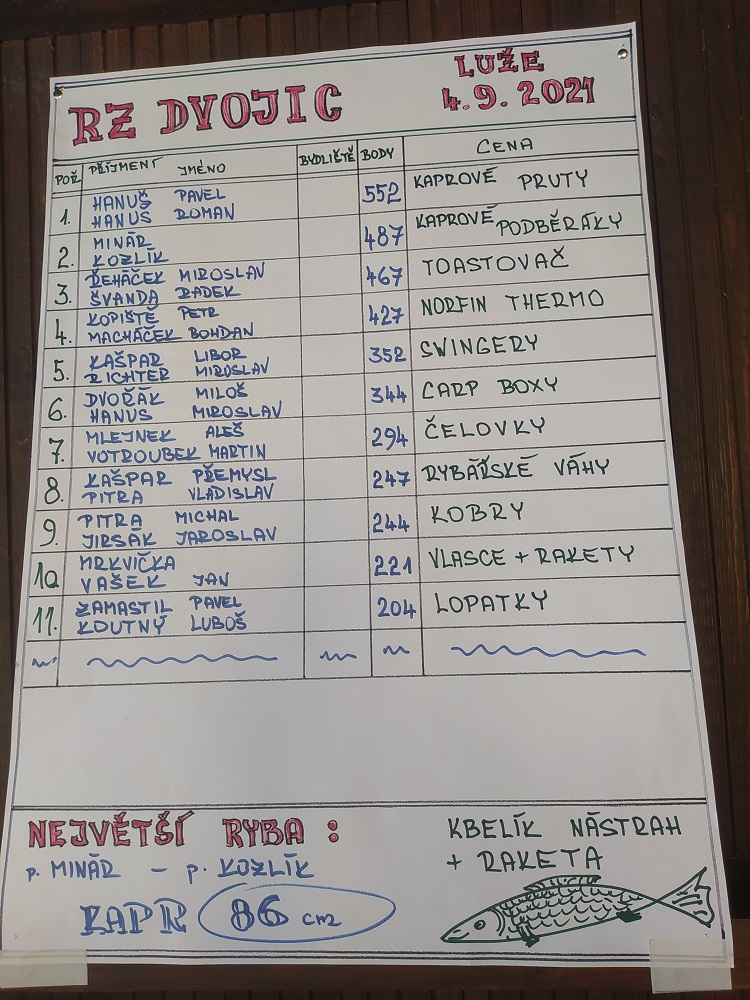 RZ DVOJIC
LUŽE
4.9.2021
POŘ. PŘÍJMENÍ JMÉNO BYDLIŠTĚ BODY CENA
1. HANUŠ PAVEL 552 KAPROVÉ PRUTY
HANUŠ ROMAN
2. MINÁŘ 487 KAPROVÉ PODBĚRÁKY
KOZLÍK
3. ŘEHÁČEK MIROSLAV 467 TOASTOVAČ
ŠVANDA RADEK
4. KOPIŠTĚ PETR 427 NORFIN THERMO
MACHÁČEK BOHDAN
5. KAŠPAR LIBOR 352 SWINGERY
RICHTER MIROSLAV
6. DVOŘÁK MILOŠ 344 CARP BOXY
HANUS MIROSLAV
7. MLEJNEK ALEŠ 294 ČELOVKY
VOTROUBEK MARTIN
8. KAŠPAR PŘEMYSL 247 RYBÁŘSKÉ VÁHY
PITRA VLADISLAV
9. PITRA MICHAL 244 KOBRY
JIRSÁK JAROSLAV
10. MRKVIČKA 221 VLASCE + RAKETY
VAŠEK JAN
11. ZAMASTIL PAVEL 204 LOPATKY
KOUTNÝ LUBOŠ
NEJVĚTŠÍ RYBA :
p. MINÁŘ – p. KOZLÍK
KAPR 86 cm
KBELÍK NÁSTRAH
+ RAKETA